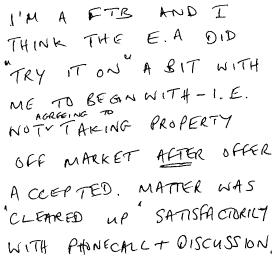 I'M A FTB AND I
THINK THE E.A DID
"TRY IT ON" A BIT WITH
ME TO BEGIN WITH - I.E.
NOT AGREEING TO TAKING PROPERTY
OFF MARKET AFTER OFFER
ACCEPTED. MATTER WAS
"CLEARED UP" SATISFACTORILY
WITH PHONECALL + DISCUSSION.